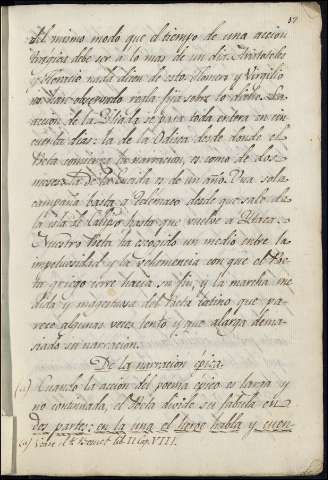 37
Al mismo modo que el tiempo de una accion
tragica debe ser à lo mas de un dia. Aristoteles
y Horacio nada dicen de esto. Homero y Virgilio
no han observado regla fija sobre lo dicho. La
accion de la Iliada se pasa toda entera en cin
cuenta dias: la de la Odisea desde donde el
Poeta comienza la narracion, es como de dos
meses: la de la Eneida es de un año. Una sola
campaña basta a Telemaco desde que sale de
la isla de Calipso hasta que vuelve a Ytaca.
Nuestro Poeta ha escogido un medio entre la
impetuosidad y la vehemencia con que el Poe
ta griego corre hacia su fin, y la marcha me
dida y magestuosa del Poeta latino que pa
rece algunas veces lento y que alarga dema
siado su narracion.
De la narracion epica
(a) Cuando la accion del poema epico es larga y
no continuada, el Poeta divide su fabula en
dos partes: en la una el heroe habla y cuen
(a) lib. II Cap. VIII.